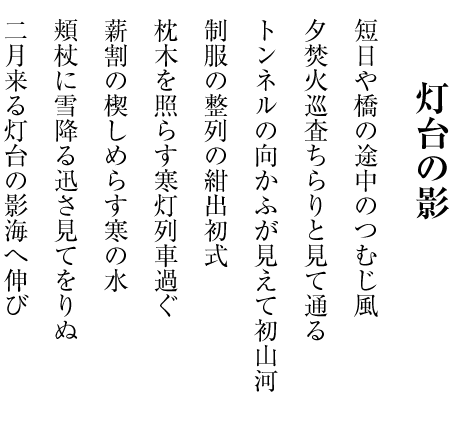 灯台の影
短日や橋の途中のつむじ風
夕焚火巡査ちらりと見て通る
トンネルの向かふが見えて初山河
制服の整列の紺出初式
枕木を照らす寒灯列車過ぐ
薪割の楔しめらす寒の水
頬杖に雪降る迅さ見てをりぬ
二月来る灯台の影海へ伸び